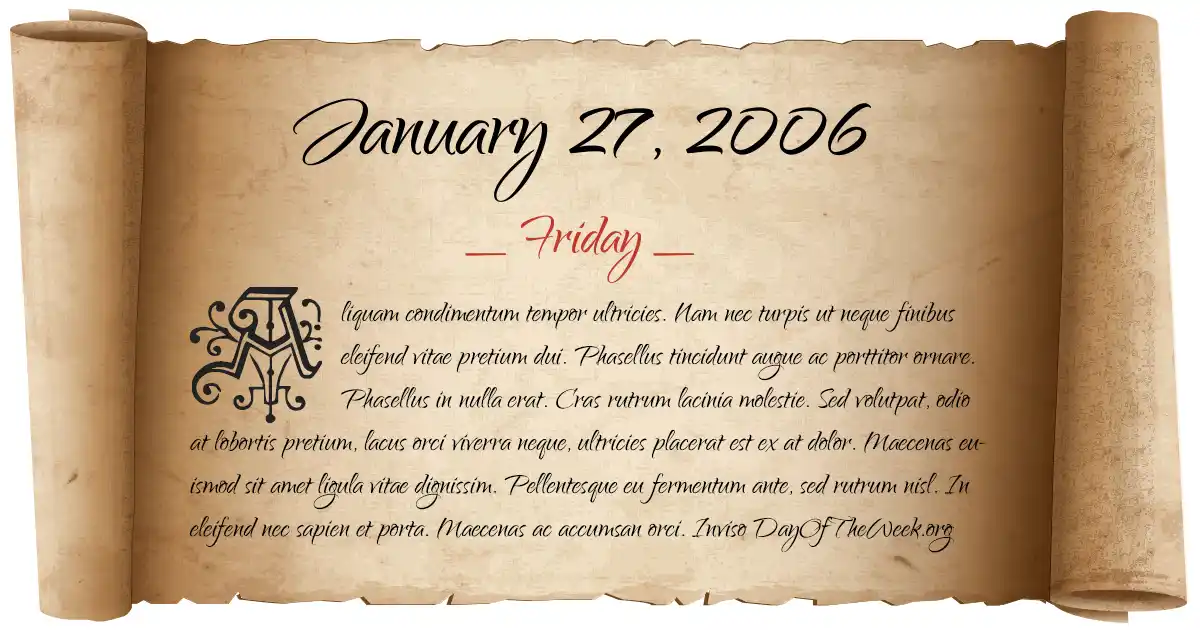 January 27, 2006
__ Friday __
Aliquam condimentum tempor ultricies. Nam nec turpis ut neque finibus
eleifend vitae pretium dui. Phasellus tincidunt augue ac porttitor ornare.
Phasellus in nulla erat. Cras rutrum lacinia molestie. Sed volutpat, odio
at lobortis pretium, lacus orci viverra neque, ultricies placerat est ex at dolor. Maecenas eu-
ismod sit amet ligula vitae dignissim. Pellentesque eu fermentum ante, sed rutrum nisl. In
eleifend nec sapien et porta. Maecenas ac accumsan orci. Inviso DayOfTheWeek.org